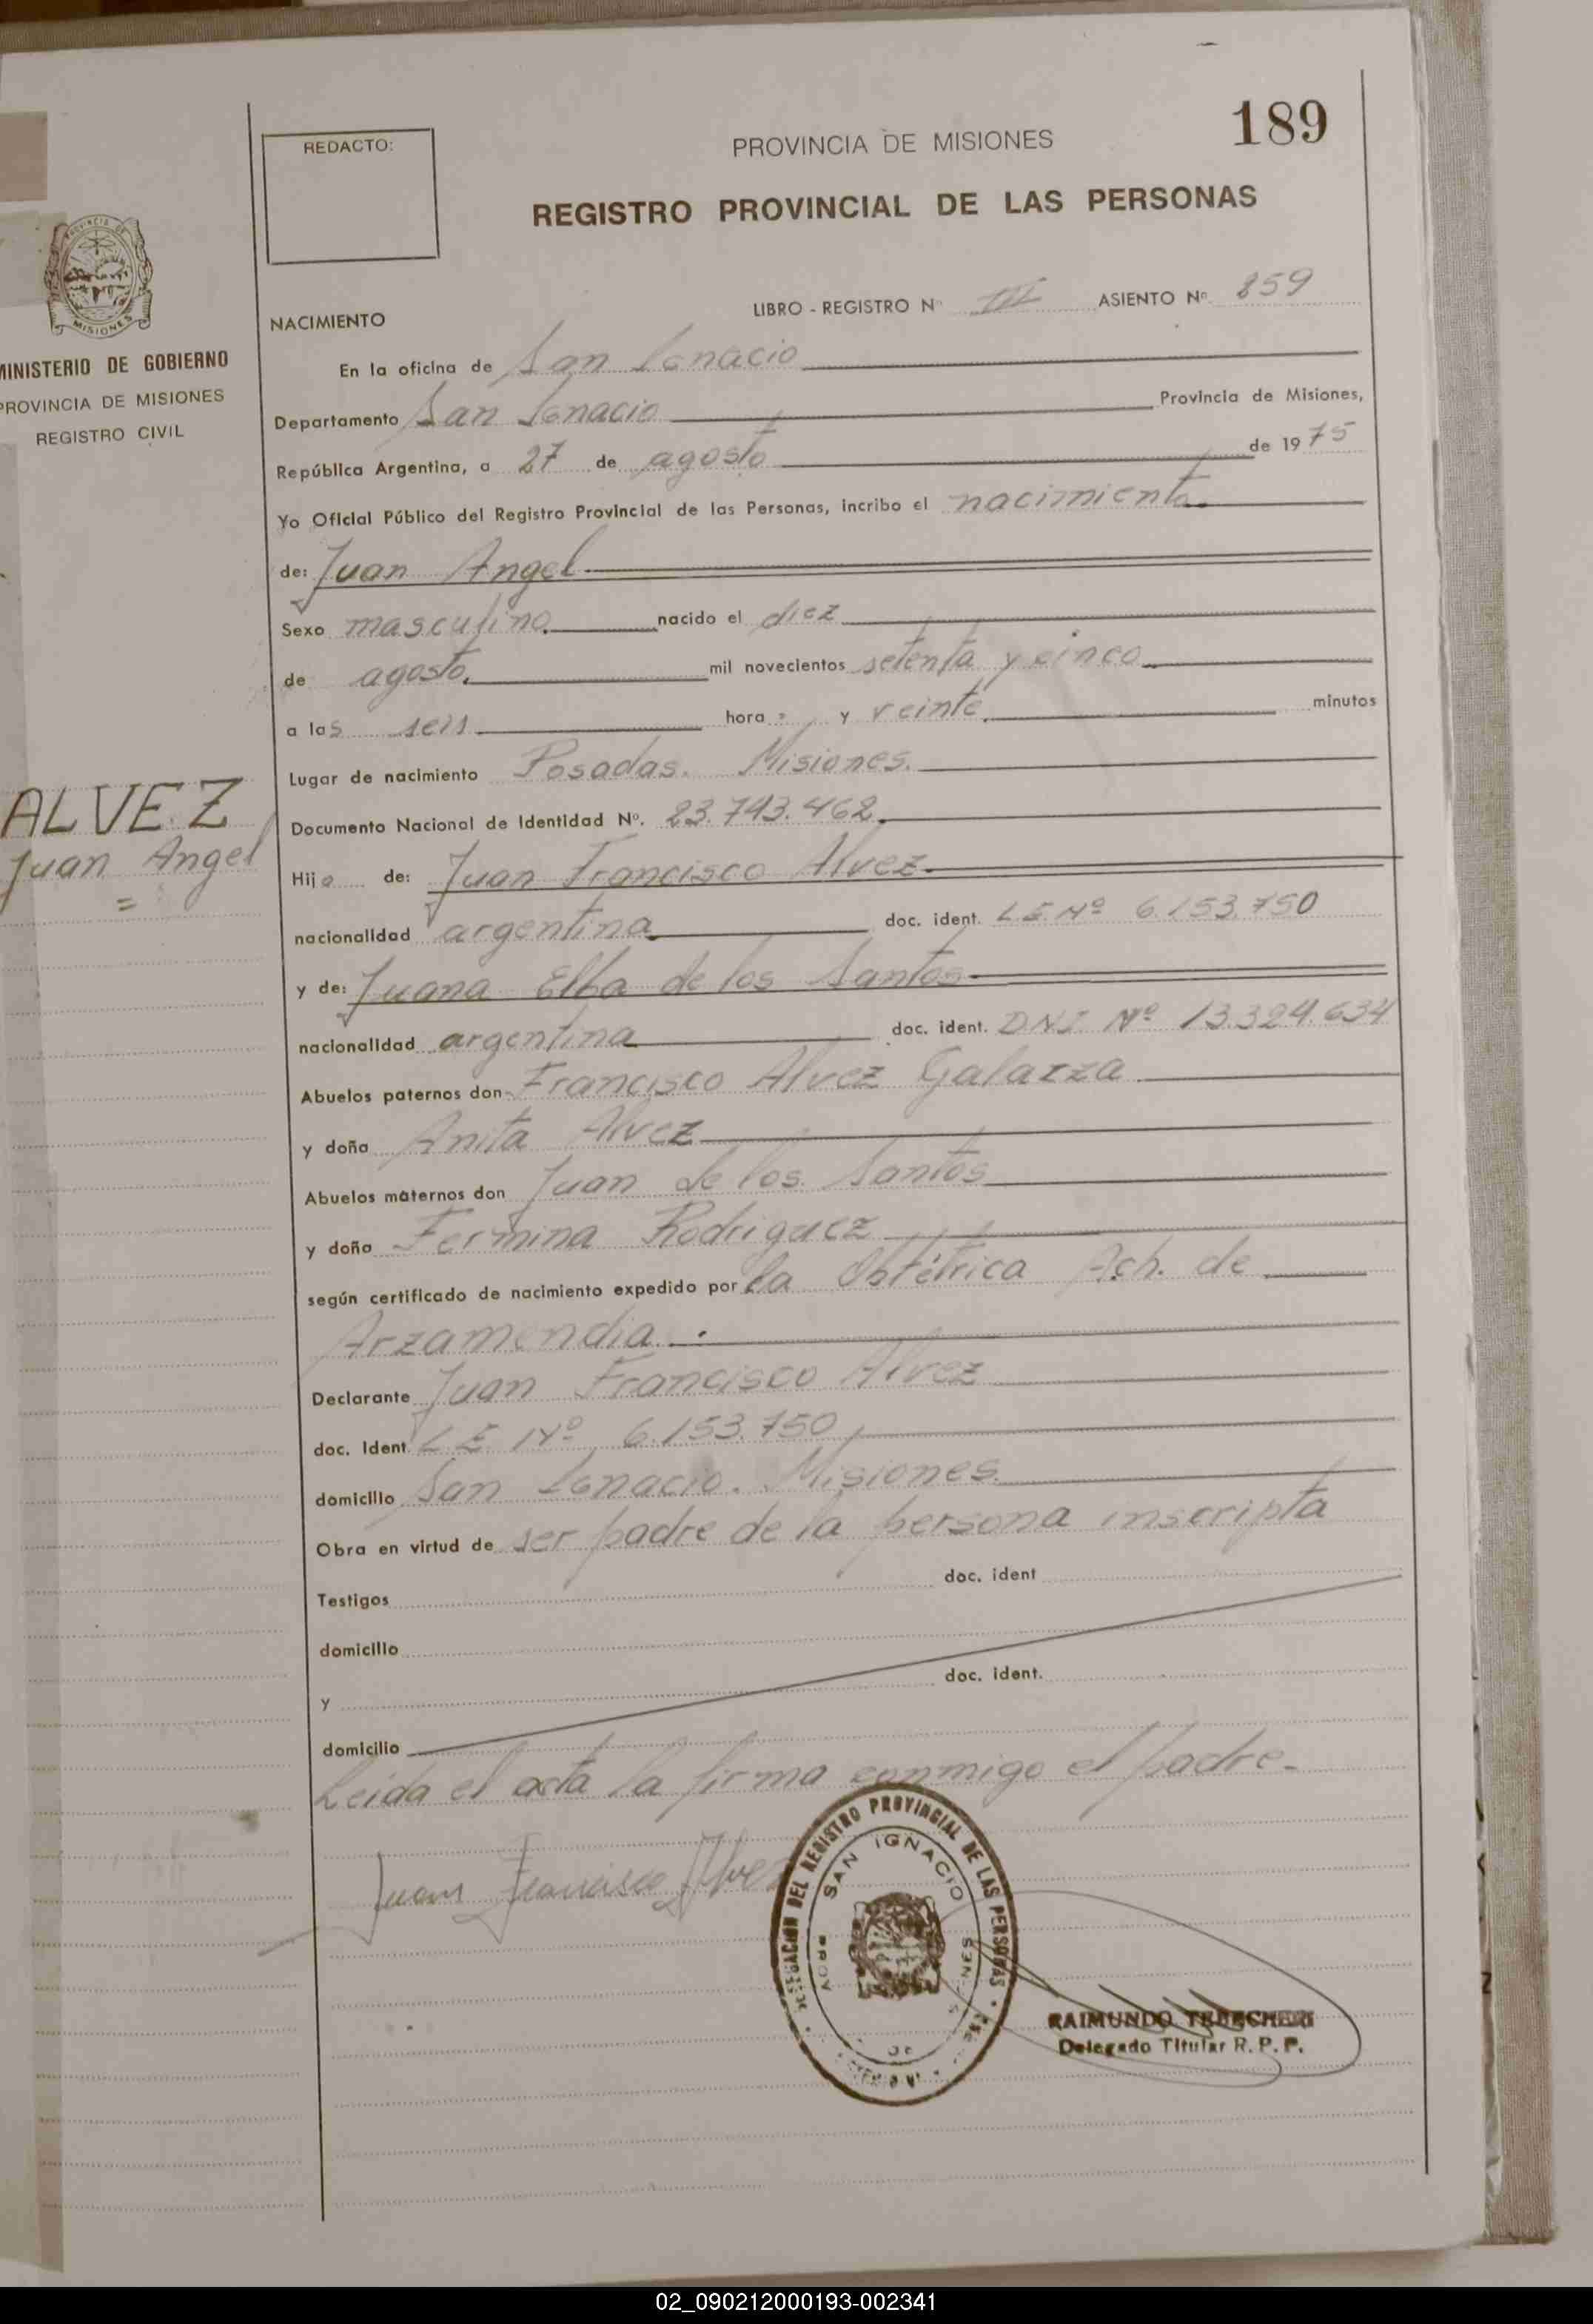 189
REDACTO:
PROVINCIA DE MISIONES
REGISTRO PROVINCIAL DE LAS PERSONAS
MISIONES
MINISTERIO DE GOBIERNO
PROVINCIA DE MISIONES
REGISTRO CIVIL
LIBRO - REGISTRO Nº III ASIENTO Nº 859
NACIMIENTO
En la oficina de San Ignacio
Departamento San Ignacio Provincia de Misiones,
República Argentina, a 27 de agosto de 1975
Yo Oficial Público del Registro Provincial de las Personas, incribo el nacimiento.
de: Juan Angel
Sexo masculino. nacido el diez
de agosto. mil novecientos setenta y cinco.
a las seis hora s y veinte. minutos
Lugar de nacimiento Posadas. Misiones.
Documento Nacional de Identidad Nº. 23.793.462.
ALVEZ
Juan Angel
=
Hijo de: Juan Francisco Alvez
nacionalidad argentina doc. ident. L.E. Nº 6.153.750
y de: Juana Elba de los Santos
nacionalidad argentina doc. ident. DNI. Nº 13.329.634
Abuelos paternos don Francisco Alvez Galarza
y doña Anita Alvez
Abuelos maternos don Juan de los Santos
y doña Fermina Rodriguez
según certificado de nacimiento expedido por la Obtétrica Ach. de
Arzamendia.
Declarante Juan Francisco Alvez
doc. Ident. L E. Nº 6.153.750
domicilio San Ignacio. Misiones
Obra en virtud de ser padre de la persona inscripta
Testigos doc. ident
domicilio
y doc. ident.
domicilio
Leida el acta la firma conmigo el padre.
Juan Francisco Alvez
DELEGACION DEL REGISTRO PROVINCIAL DE LAS PERSONAS
SAN IGNACIO
PROV
RAIMUNDO
Delegado Titular R. P. P.
02_090212000193-002341